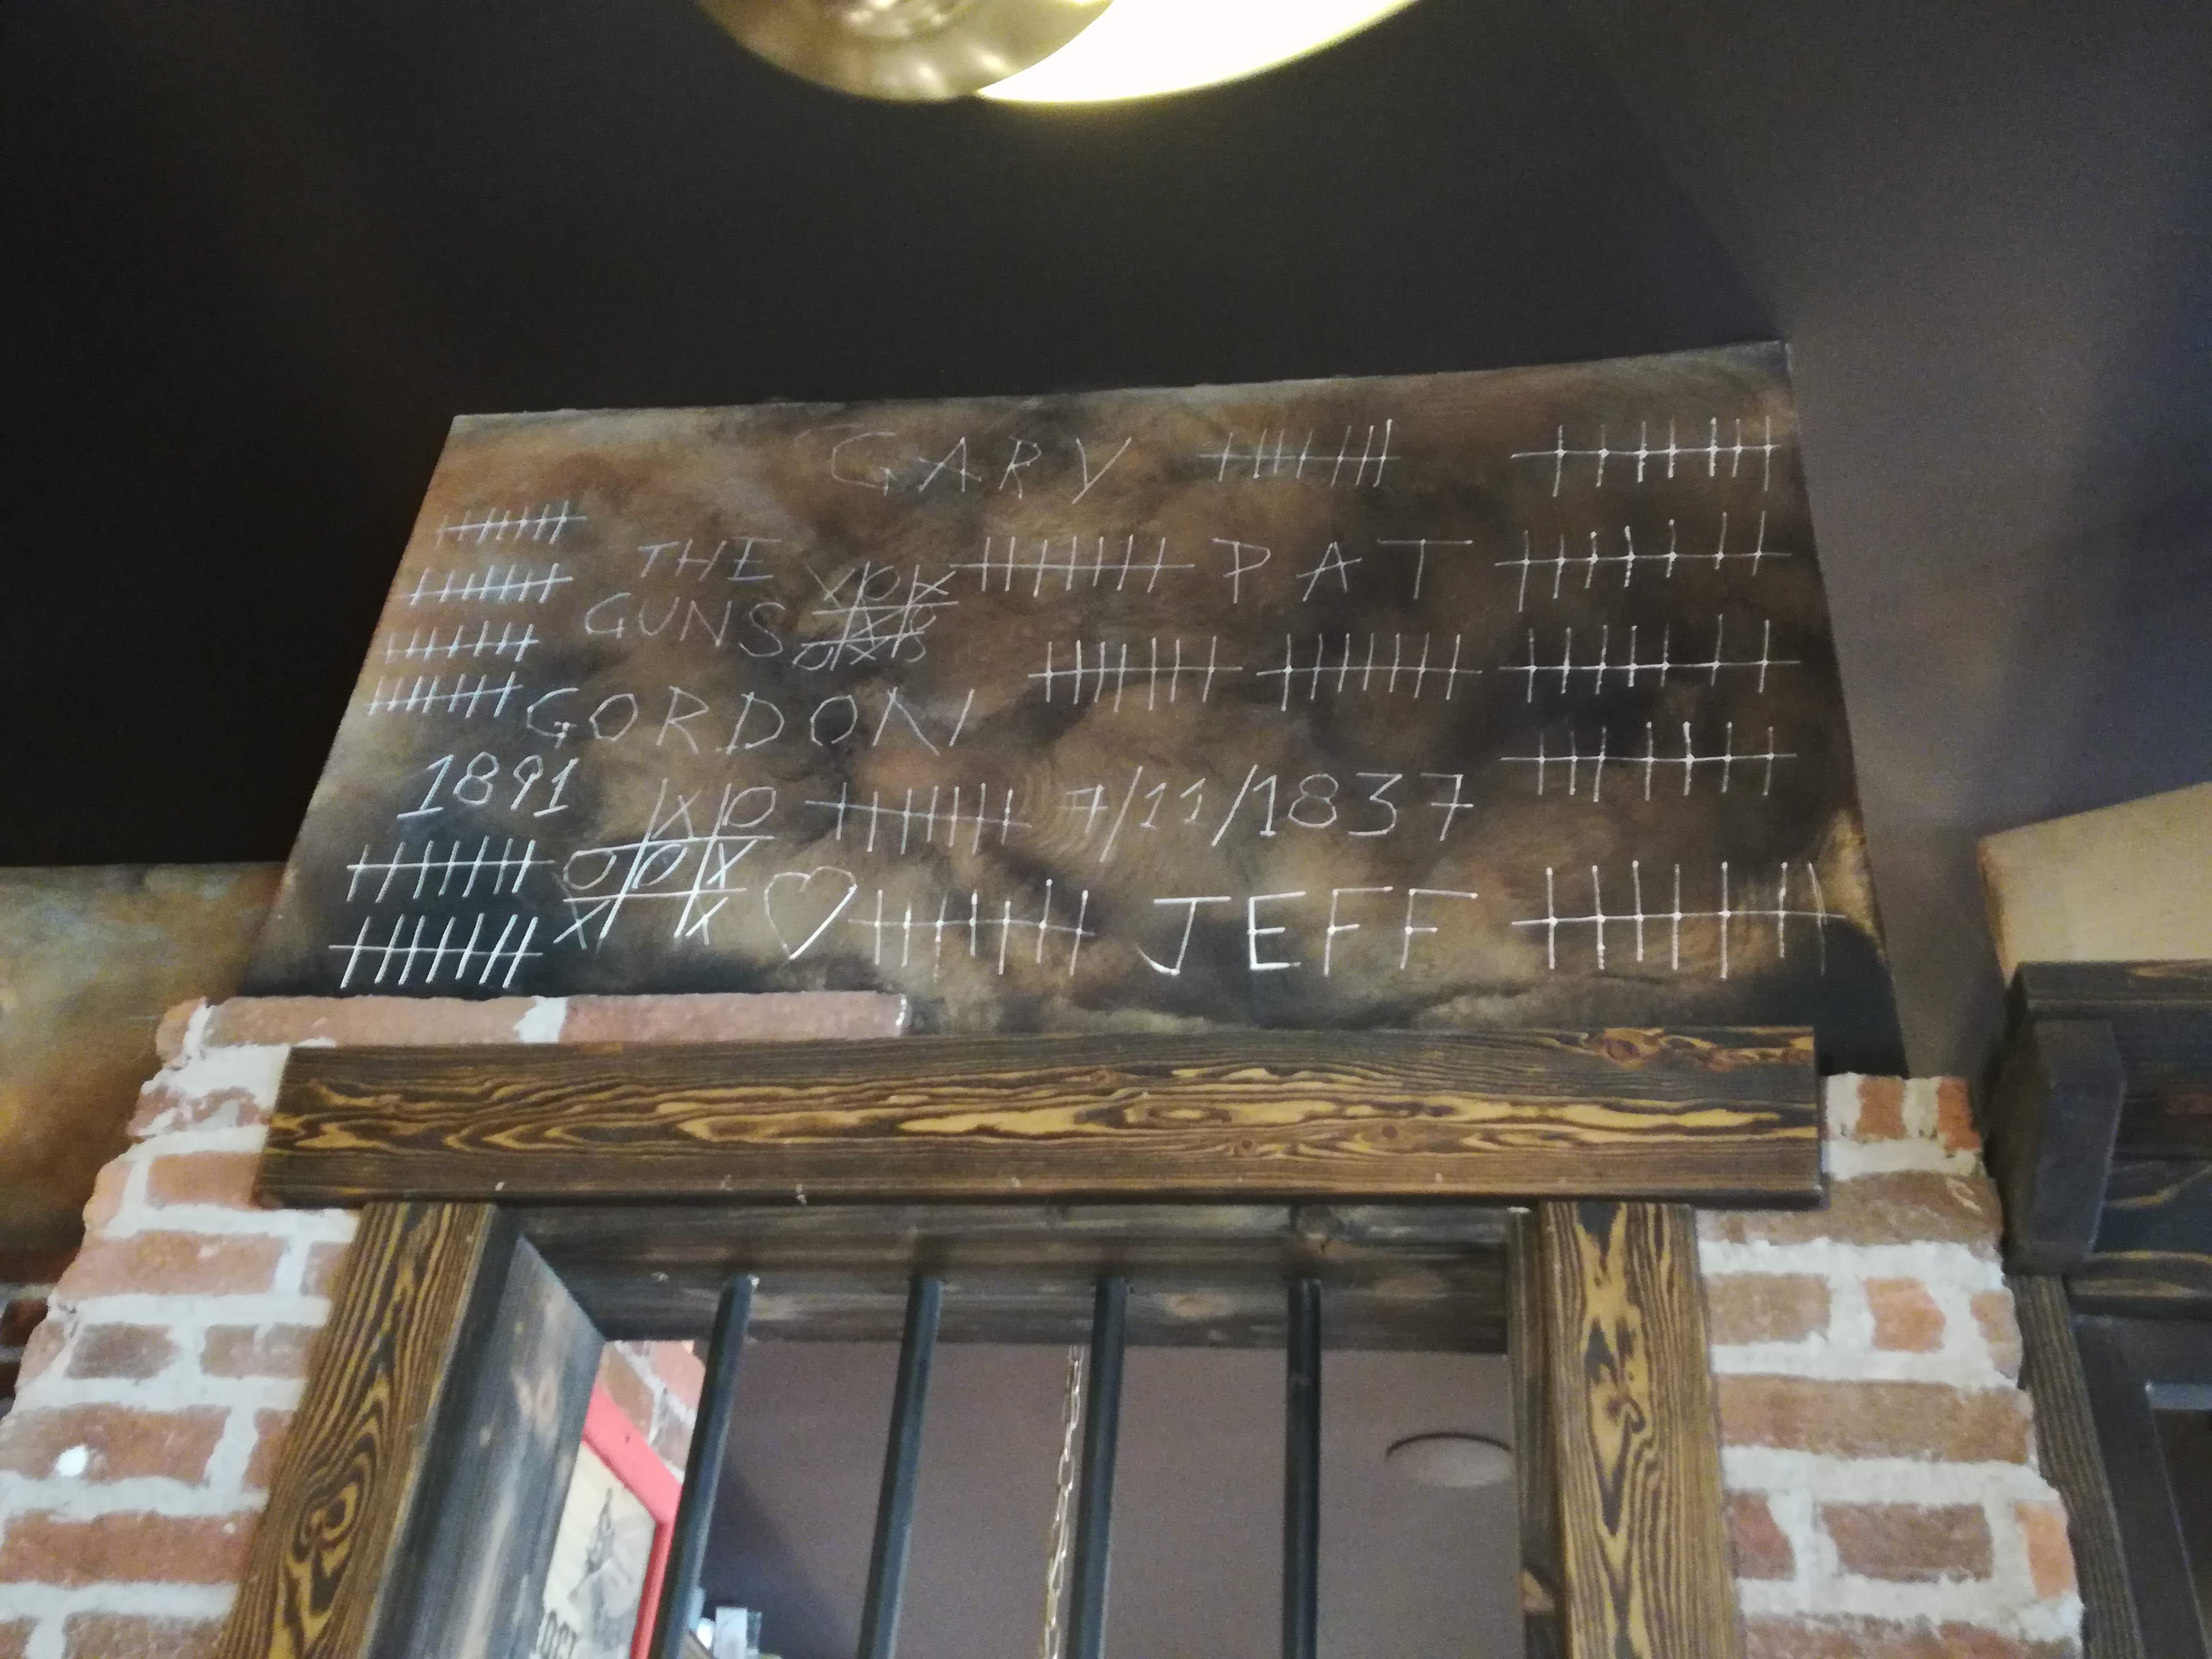 GARY
THE
GUNS
PAT
GORDON
1891
7/11/1837
JEFF